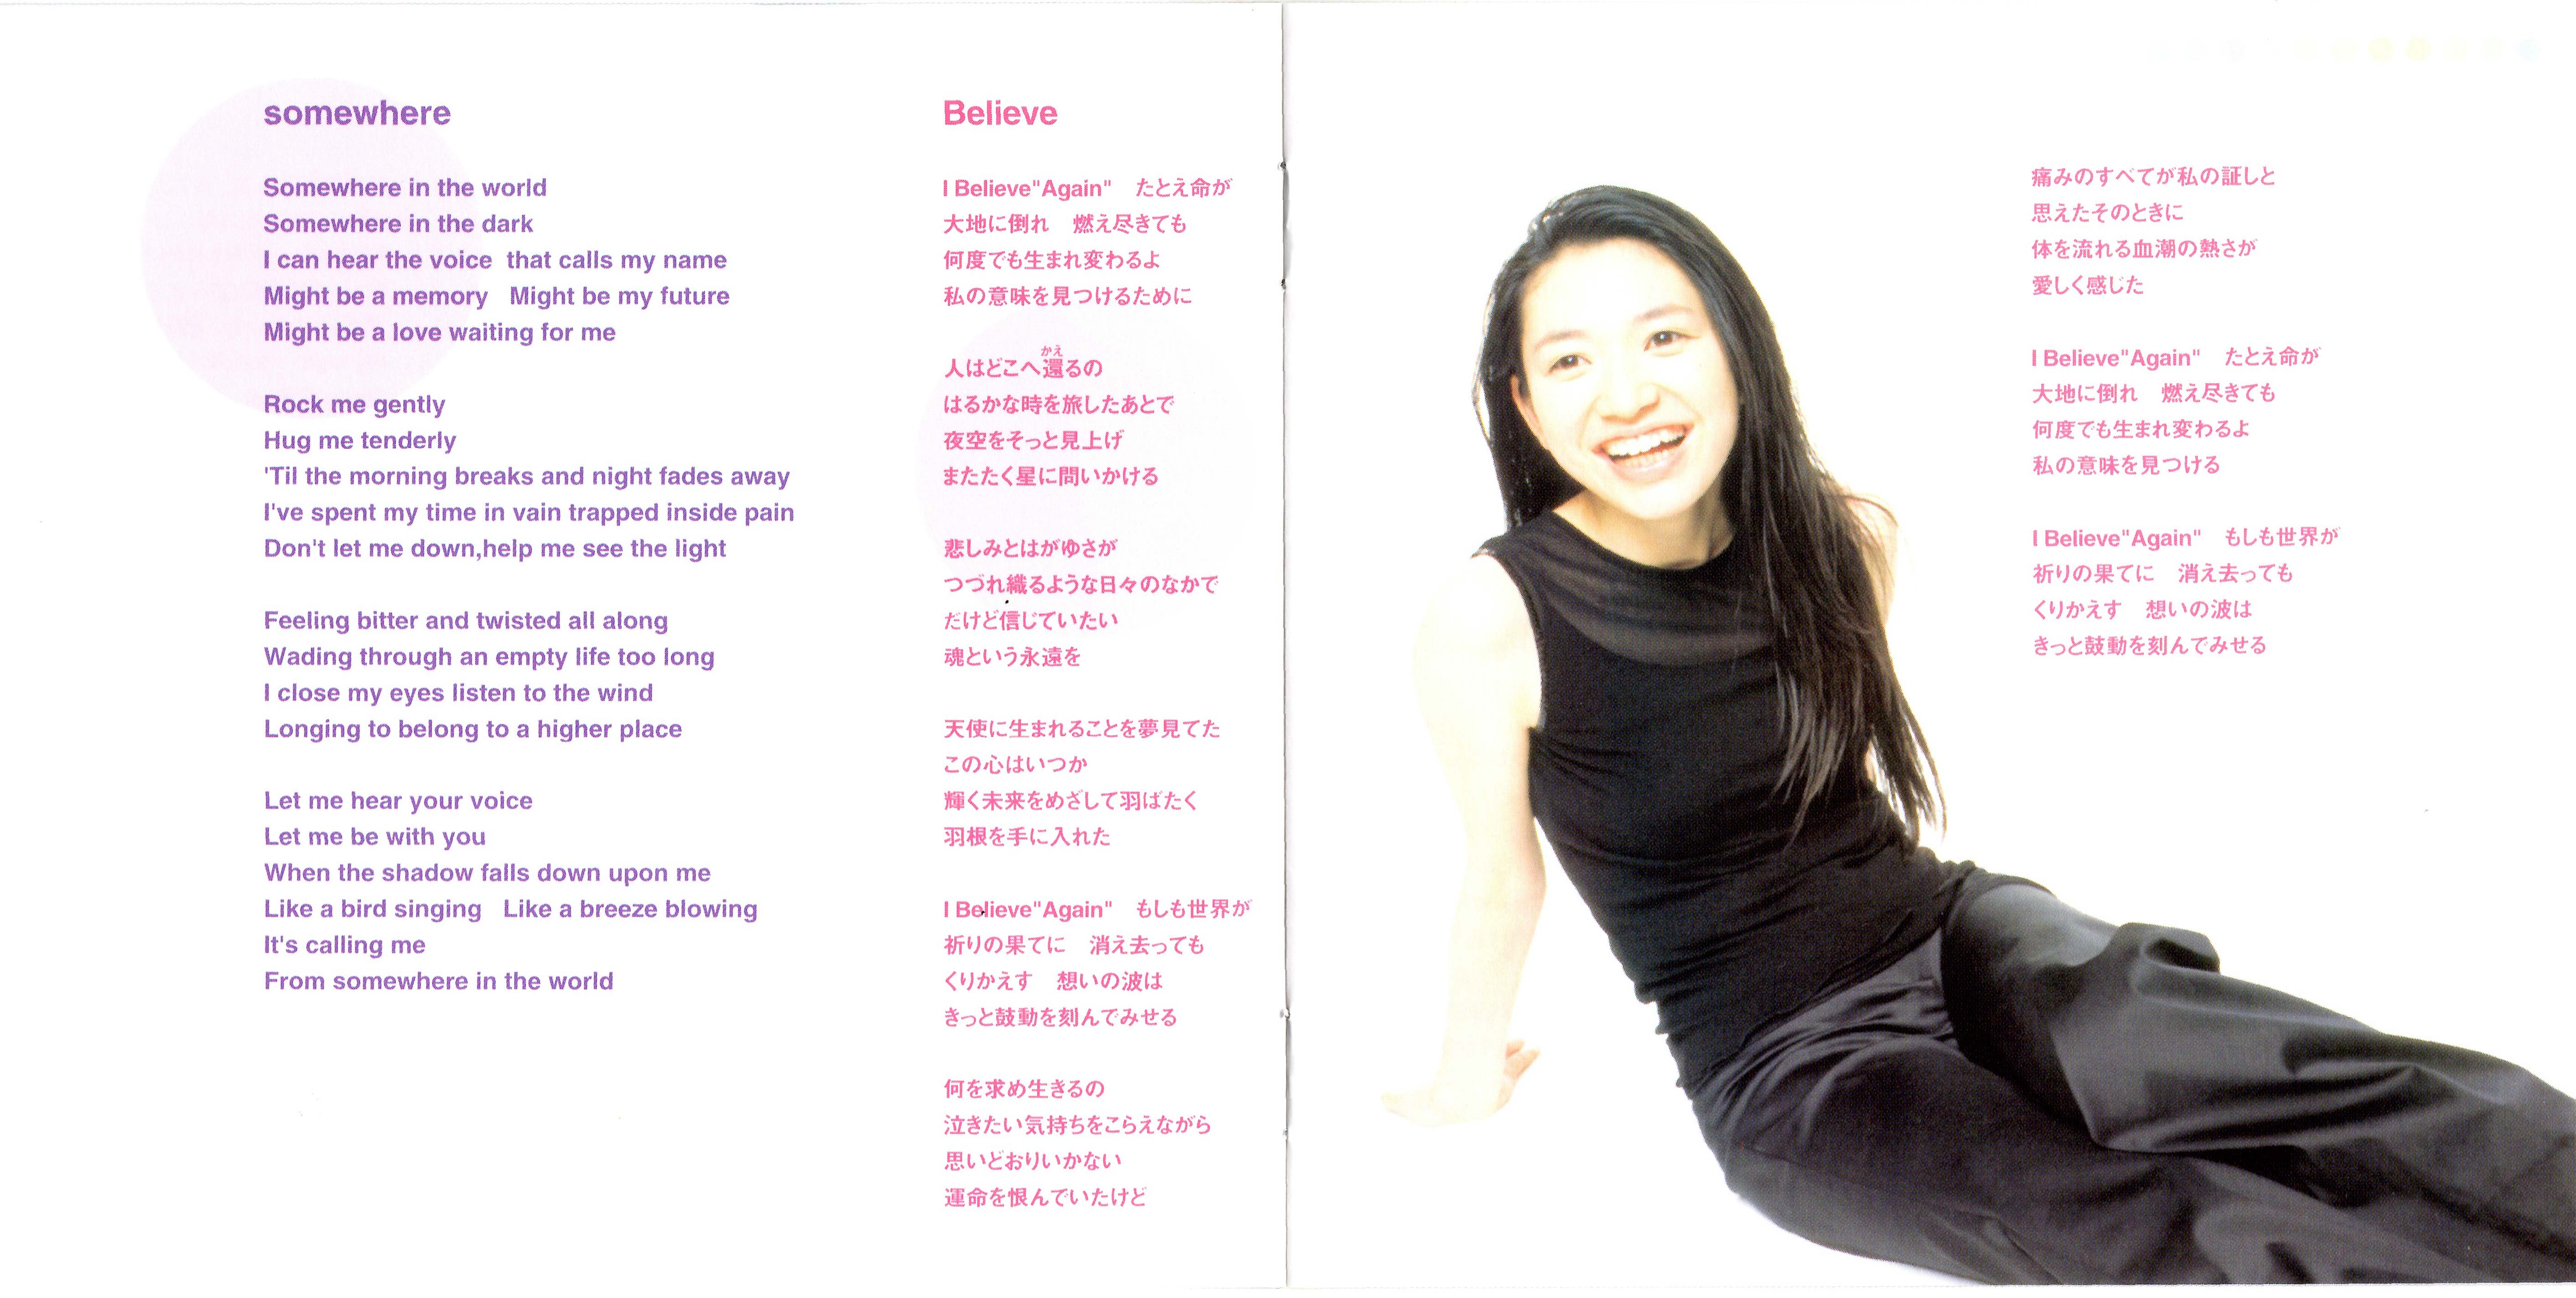 somewhere
Somewhere in the world
Somewhere in the dark
I can hear the voice  that calls my name
Might be a memory   Might be my future
Might be a love waiting for me
Rock me gently
Hug me tenderly
'Til the morning breaks and night fades away
I've spent my time in vain trapped inside pain
Don't let me down,help me see the light
Feeling bitter and twisted all along
Wading through an empty life too long
I close my eyes listen to the wind
Longing to belong to a higher place
Let me hear your voice
Let me be with you
When the shadow falls down upon me
Like a bird singing   Like a breeze blowing
It's calling me
From somewhere in the world
Believe
I Believe"Again"　たとえ命が
大地に倒れ　燃え尽きても
何度でも生まれ変わるよ
私の意味を見つけるために
かえ
人はどこへ還るの
はるかな時を旅したあとで
夜空をそっと見上げ
またたく星に問いかける
悲しみとはがゆさが
つづれ織るような日々のなかで
だけど信じていたい
魂という永遠を
天使に生まれることを夢見てた
この心はいつか
輝く未来をめざして羽ばたく
羽根を手に入れた
I Believe"Again"　もしも世界が
祈りの果てに　消え去っても
くりかえす　想いの波は
きっと鼓動を刻んでみせる
何を求め生きるの
泣きたい気持ちをこらえながら
思いどおりいかない
運命を恨んでいたけど
痛みのすべてが私の証しと
思えたそのときに
体を流れる血潮の熱さが
愛しく感じた
I Believe"Again"　たとえ命が
大地に倒れ　燃え尽きても
何度でも生まれ変わるよ
私の意味を見つける
I Believe"Again"　もしも世界が
祈りの果てに　消え去っても
くりかえす　想いの波は
きっと鼓動を刻んでみせる